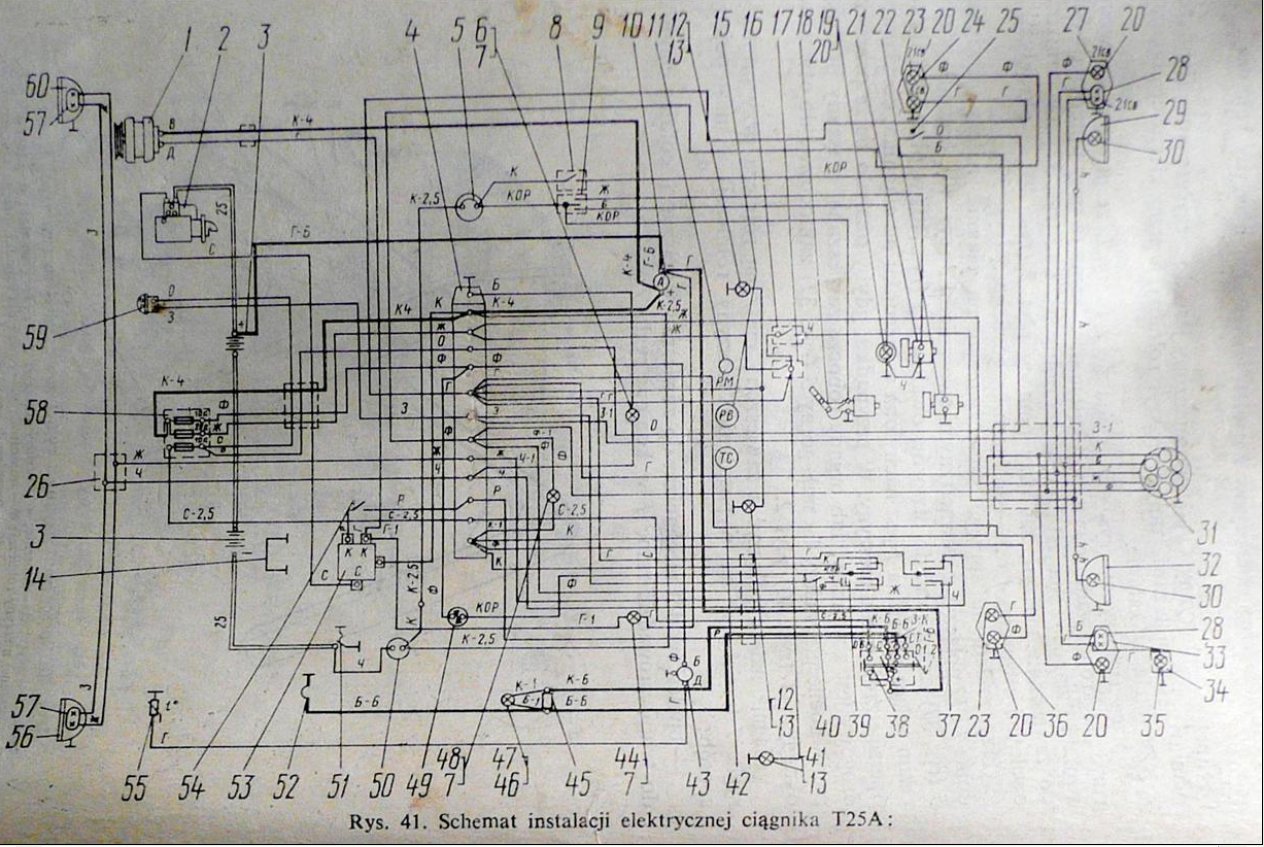 1 2 3 4 5 6 8 9 10 11 12 15 16 17 18 19 21 22 23 20 24 25 27 20
7 13 20
60
57
28
29
30
21св
21св
В
Д
К-4
Г
Ф
Г
Ф
Г
О
Б
Ф
Г
К
КОР
К-2,5
КОР
Ж
Б
КОР
25
С
З
Г-Б
К-4
Г-Б
Г
А
К-2,5
Г
59
О
З
К
К4
Б
К-4
Ж
Ж
О
Ф
Г
Ч
РМ
РВ
ТС
Ч
58
К-4
Ф
Ж
О
Ф
З
З-1
О
Г
З-1
К
Б
Ж
Ф
26
Ж
Ч
Ф
Ж
Ч
Ф-1
Ф
Ч-1
Р
С-2,5
Р
С-2,5
С-2,5
К-1
К
Ф
К
3
14
31
32
30
К
Г
К
С
С
Г-1
К-2,5
Ф
КОР
Г-1
К-2,5
К
Ф
Ж
Г
Ч
25
Ч
С-2,5
Г
Ф
Б
Ф
Г
28
33
34
57
56
З
Г
Б-Б
К-1
Б-1
К-Б
Б-Б
Р
Ф
Б
Д
Г
К-Б
Б-Б
З-К
12
13
40 39 38 37 23 20 36 20 35
55 54 53 52 51 50 49 48 47 45 44 43 42 41
7 46 7 13
Rys. 41. Schemat instalacji elektrycznej ciągnika T25A: